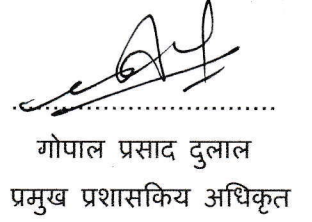 गोपाल प्रसाद दुलाल
प्रमुख प्रशासकिय अधिकृत